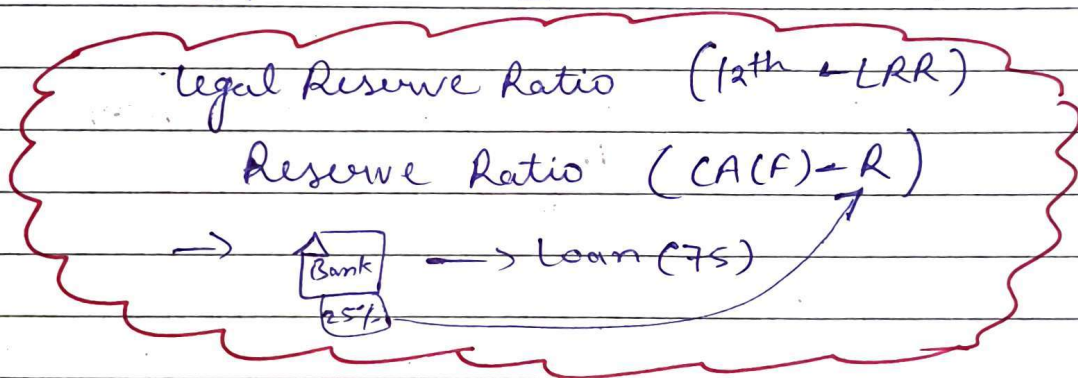 Legal Reserve Ratio (12th - LRR)
Reserve Ratio (CA(F) - R)
→ Bank → Loan (75)
25%